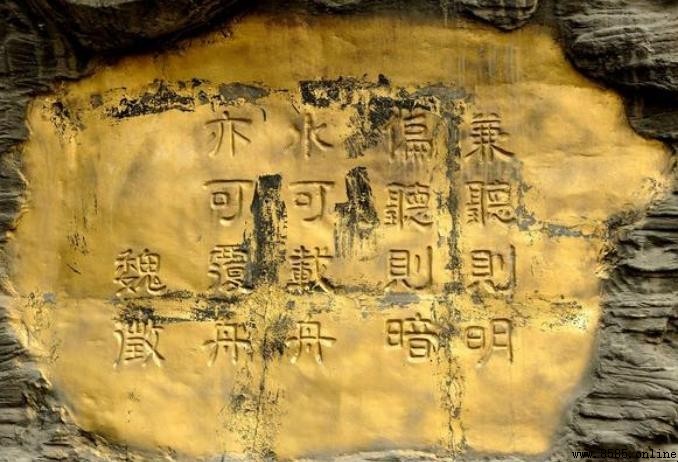 兼聽則明
偏聽則暗
水可載舟
亦可覆舟
魏徵